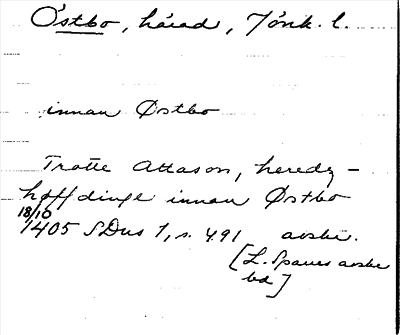 Östbo, härad, Jönk. l.
innan Østbo
Trotte Attason, heredz-
høffdinge innan Østbo
18/10
1405 SDns 1, s. 491 avskr.
[L. Spares avskr
bd]